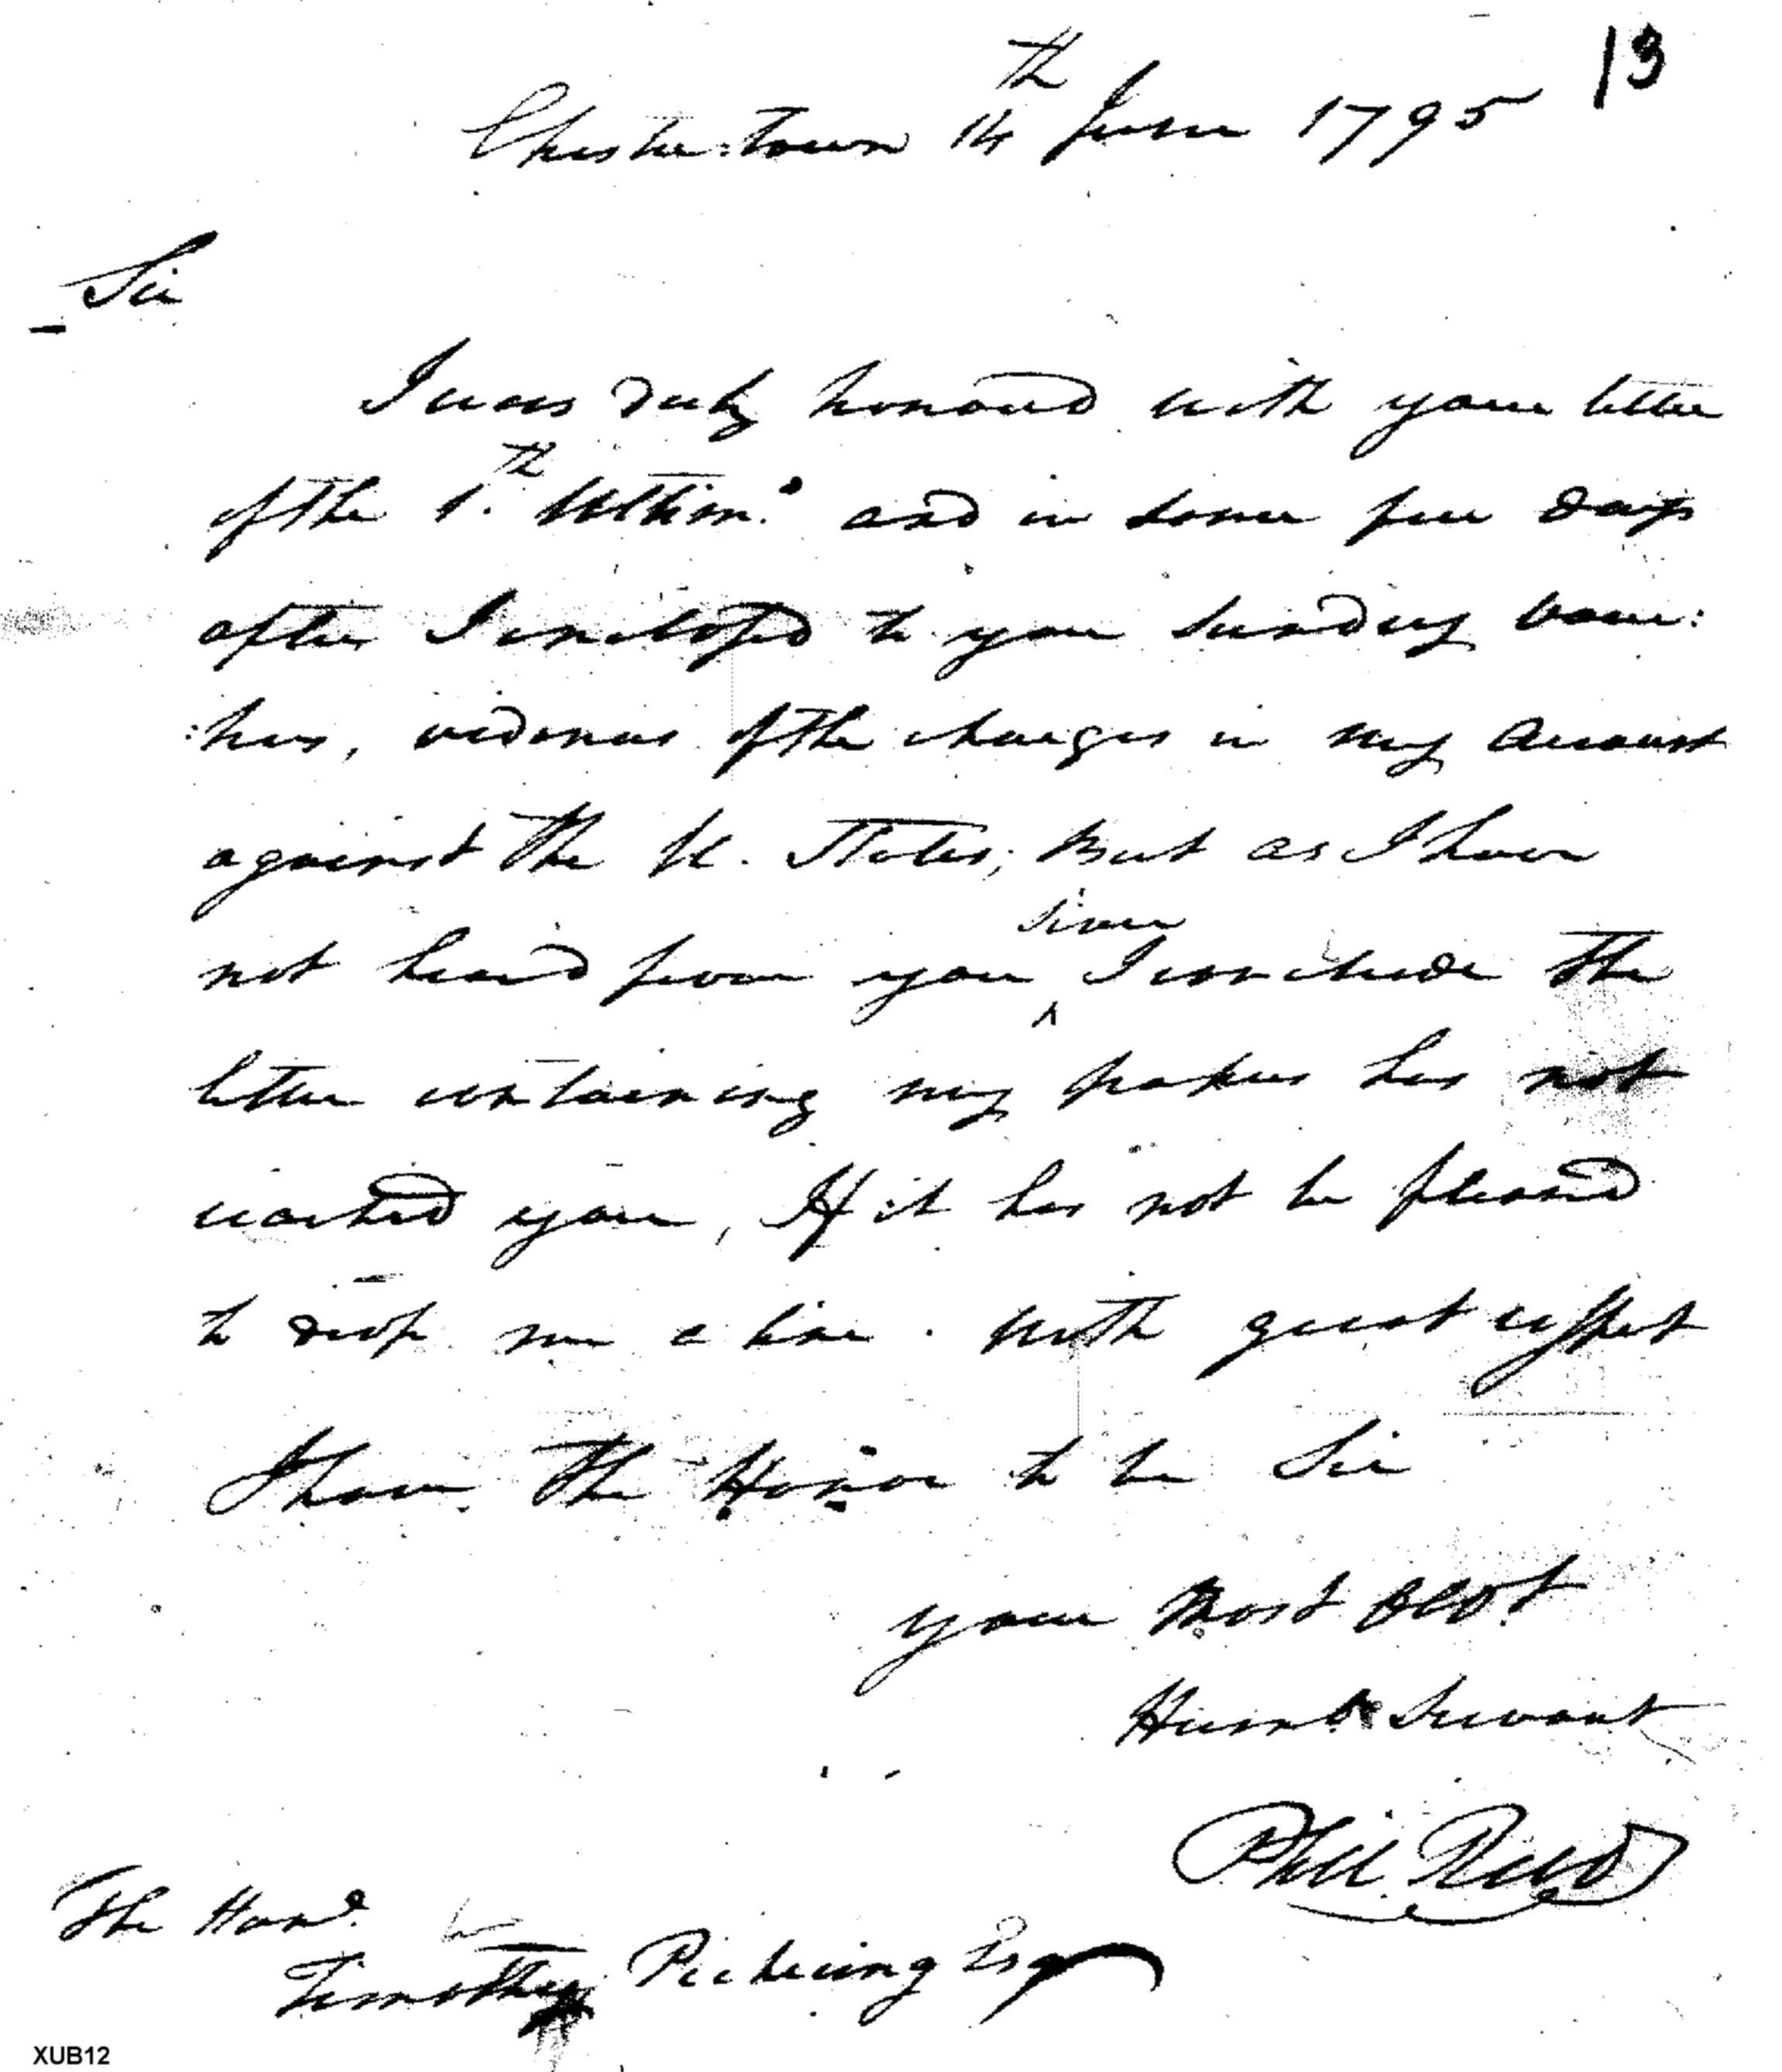 13
Chester:town 14th June 1795
Sir
I was duly honored with your letter
of the 1.th Ultim.o and in some few days
after I inclosed to you sundry vou:
:hers, of the charges in my Account
against the U. States; But as I have
since
not heard from you ^ I conclude the
letter containing my papers has not
reached you, If it has not be pleased
to drop me a line. With great respect
I have the Honor to be Sir
your Most Obdt
Humb Servant
Phil. Reed
The Hond.
Timothy Pickering Esq
XUB12